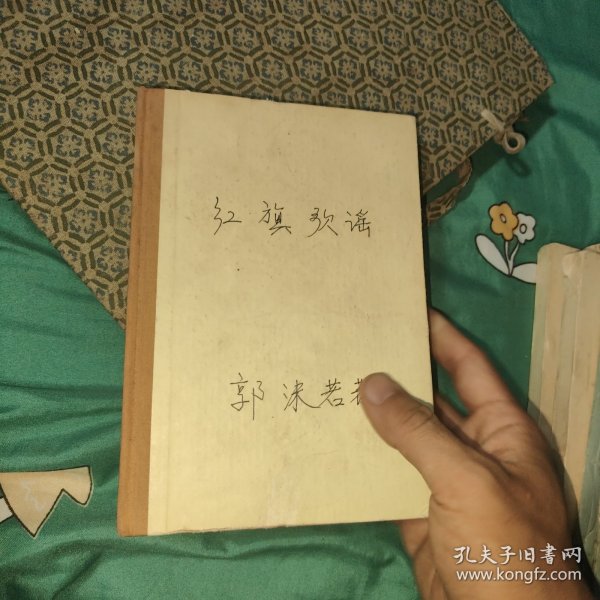 红旗歌谣
郭沫若
孔夫子旧书网
www.kongfz.com